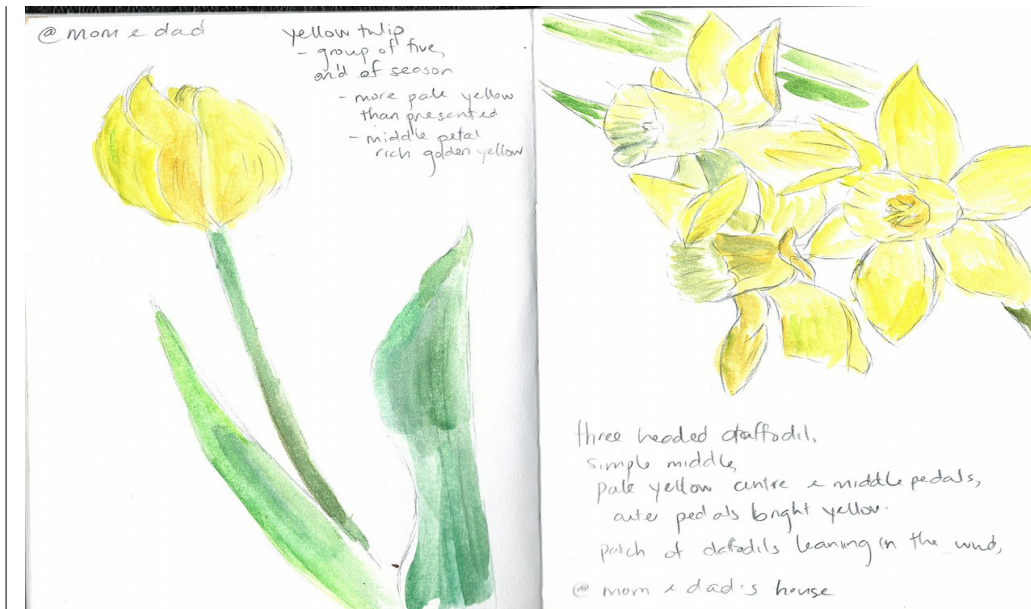 @ mom & dad
yellow tulip
- group of five,
end of season
- more pale yellow
than presented
- middle petal
rich golden yellow
three headed daffodil,
simple middle,
pale yellow centre & middle pedals,
outer pedals bright yellow.
patch of daffodils leaning in the wind,
@ mom & dad's house